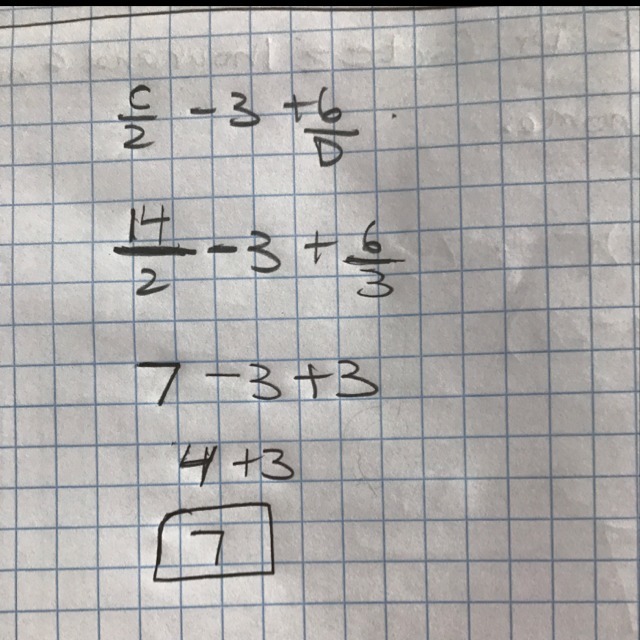 c/2 - 3 + 6/D
14/2 - 3 + 6/3
7 - 3 + 3
4 + 3
7